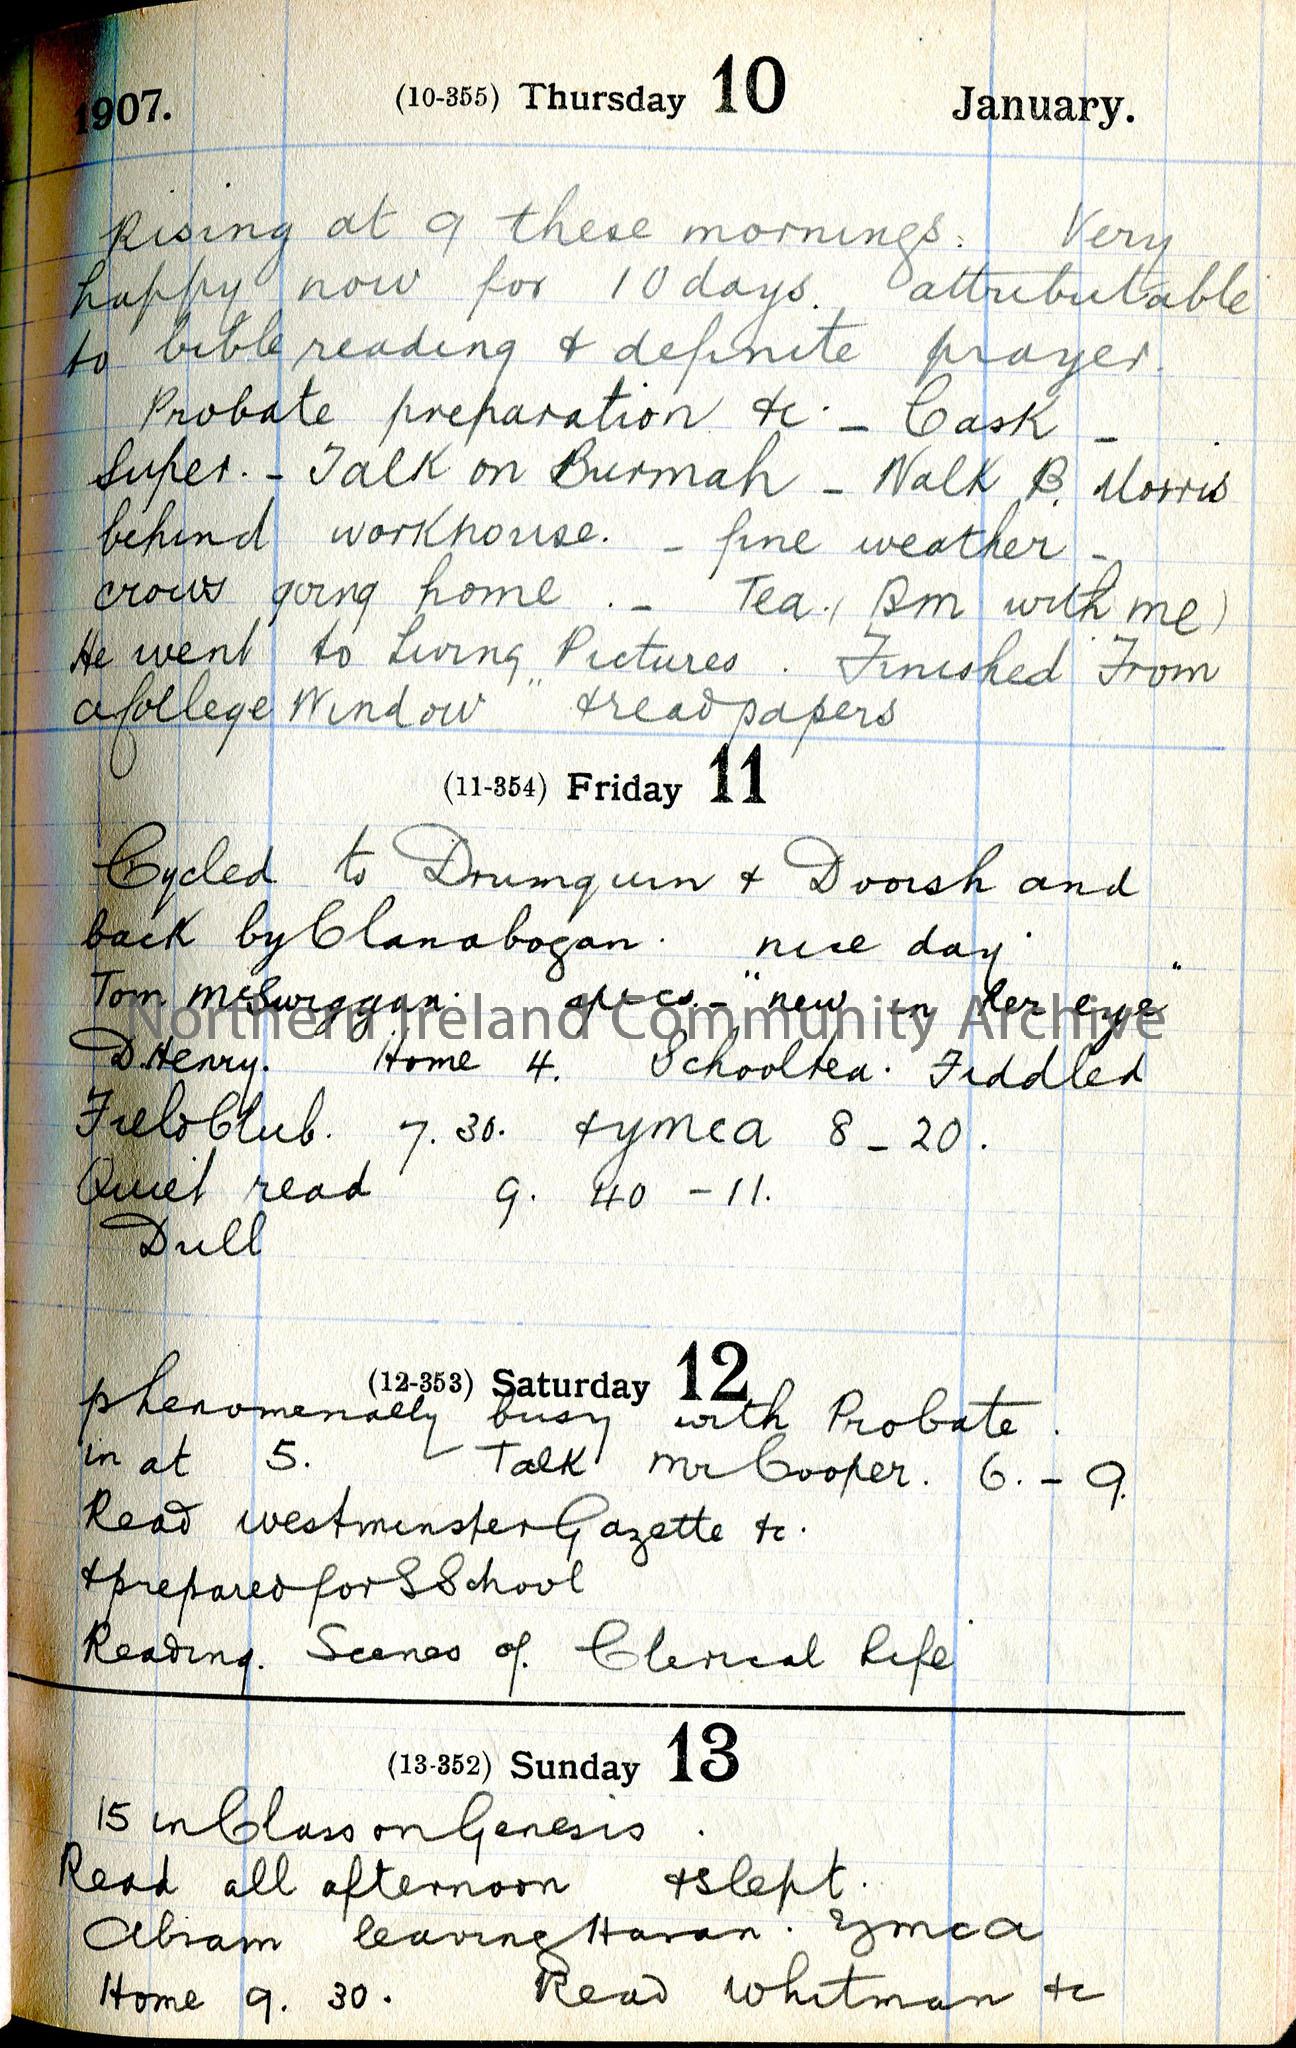 1907. (10-355) Thursday 10 January.
Rising at 9 these mornings. Very
happy now for 10 days. attributable
to bible reading & definite prayer.
Probate preparation &c - Cask -
Super. - Talk on Burmah - Walk B. Morris
behind workhouse. - fine weather -
crows going home . - Tea. (BM with me)
He went to Living Pictures. Finished "From
a College Window" & read papers
(11-354) Friday 11
Cycled to Drumquin & Dooish and
back by Clanabogan. nice day.
Tom McSwiggan. specs. - "new in her eye"
D. Henry. Home 4. School tea. Fiddled
Field Club. 7.30. & ymca 8-20.
Quiet read 9.40 - 11.
Dull
(12-353) Saturday 12
phenomenally busy with Probate.
in at 5. Talk Mr Cooper. 6. - 9.
Read Westminster Gazette &c.
& prepared for S School
Reading. Scenes of Clerical Life
(13-352) Sunday 13
15 in Class on Genesis.
Read all afternoon & slept.
Abram leaving Haran. Ymca
Home 9.30. Read Whitman &c
Northern Ireland Community Archive